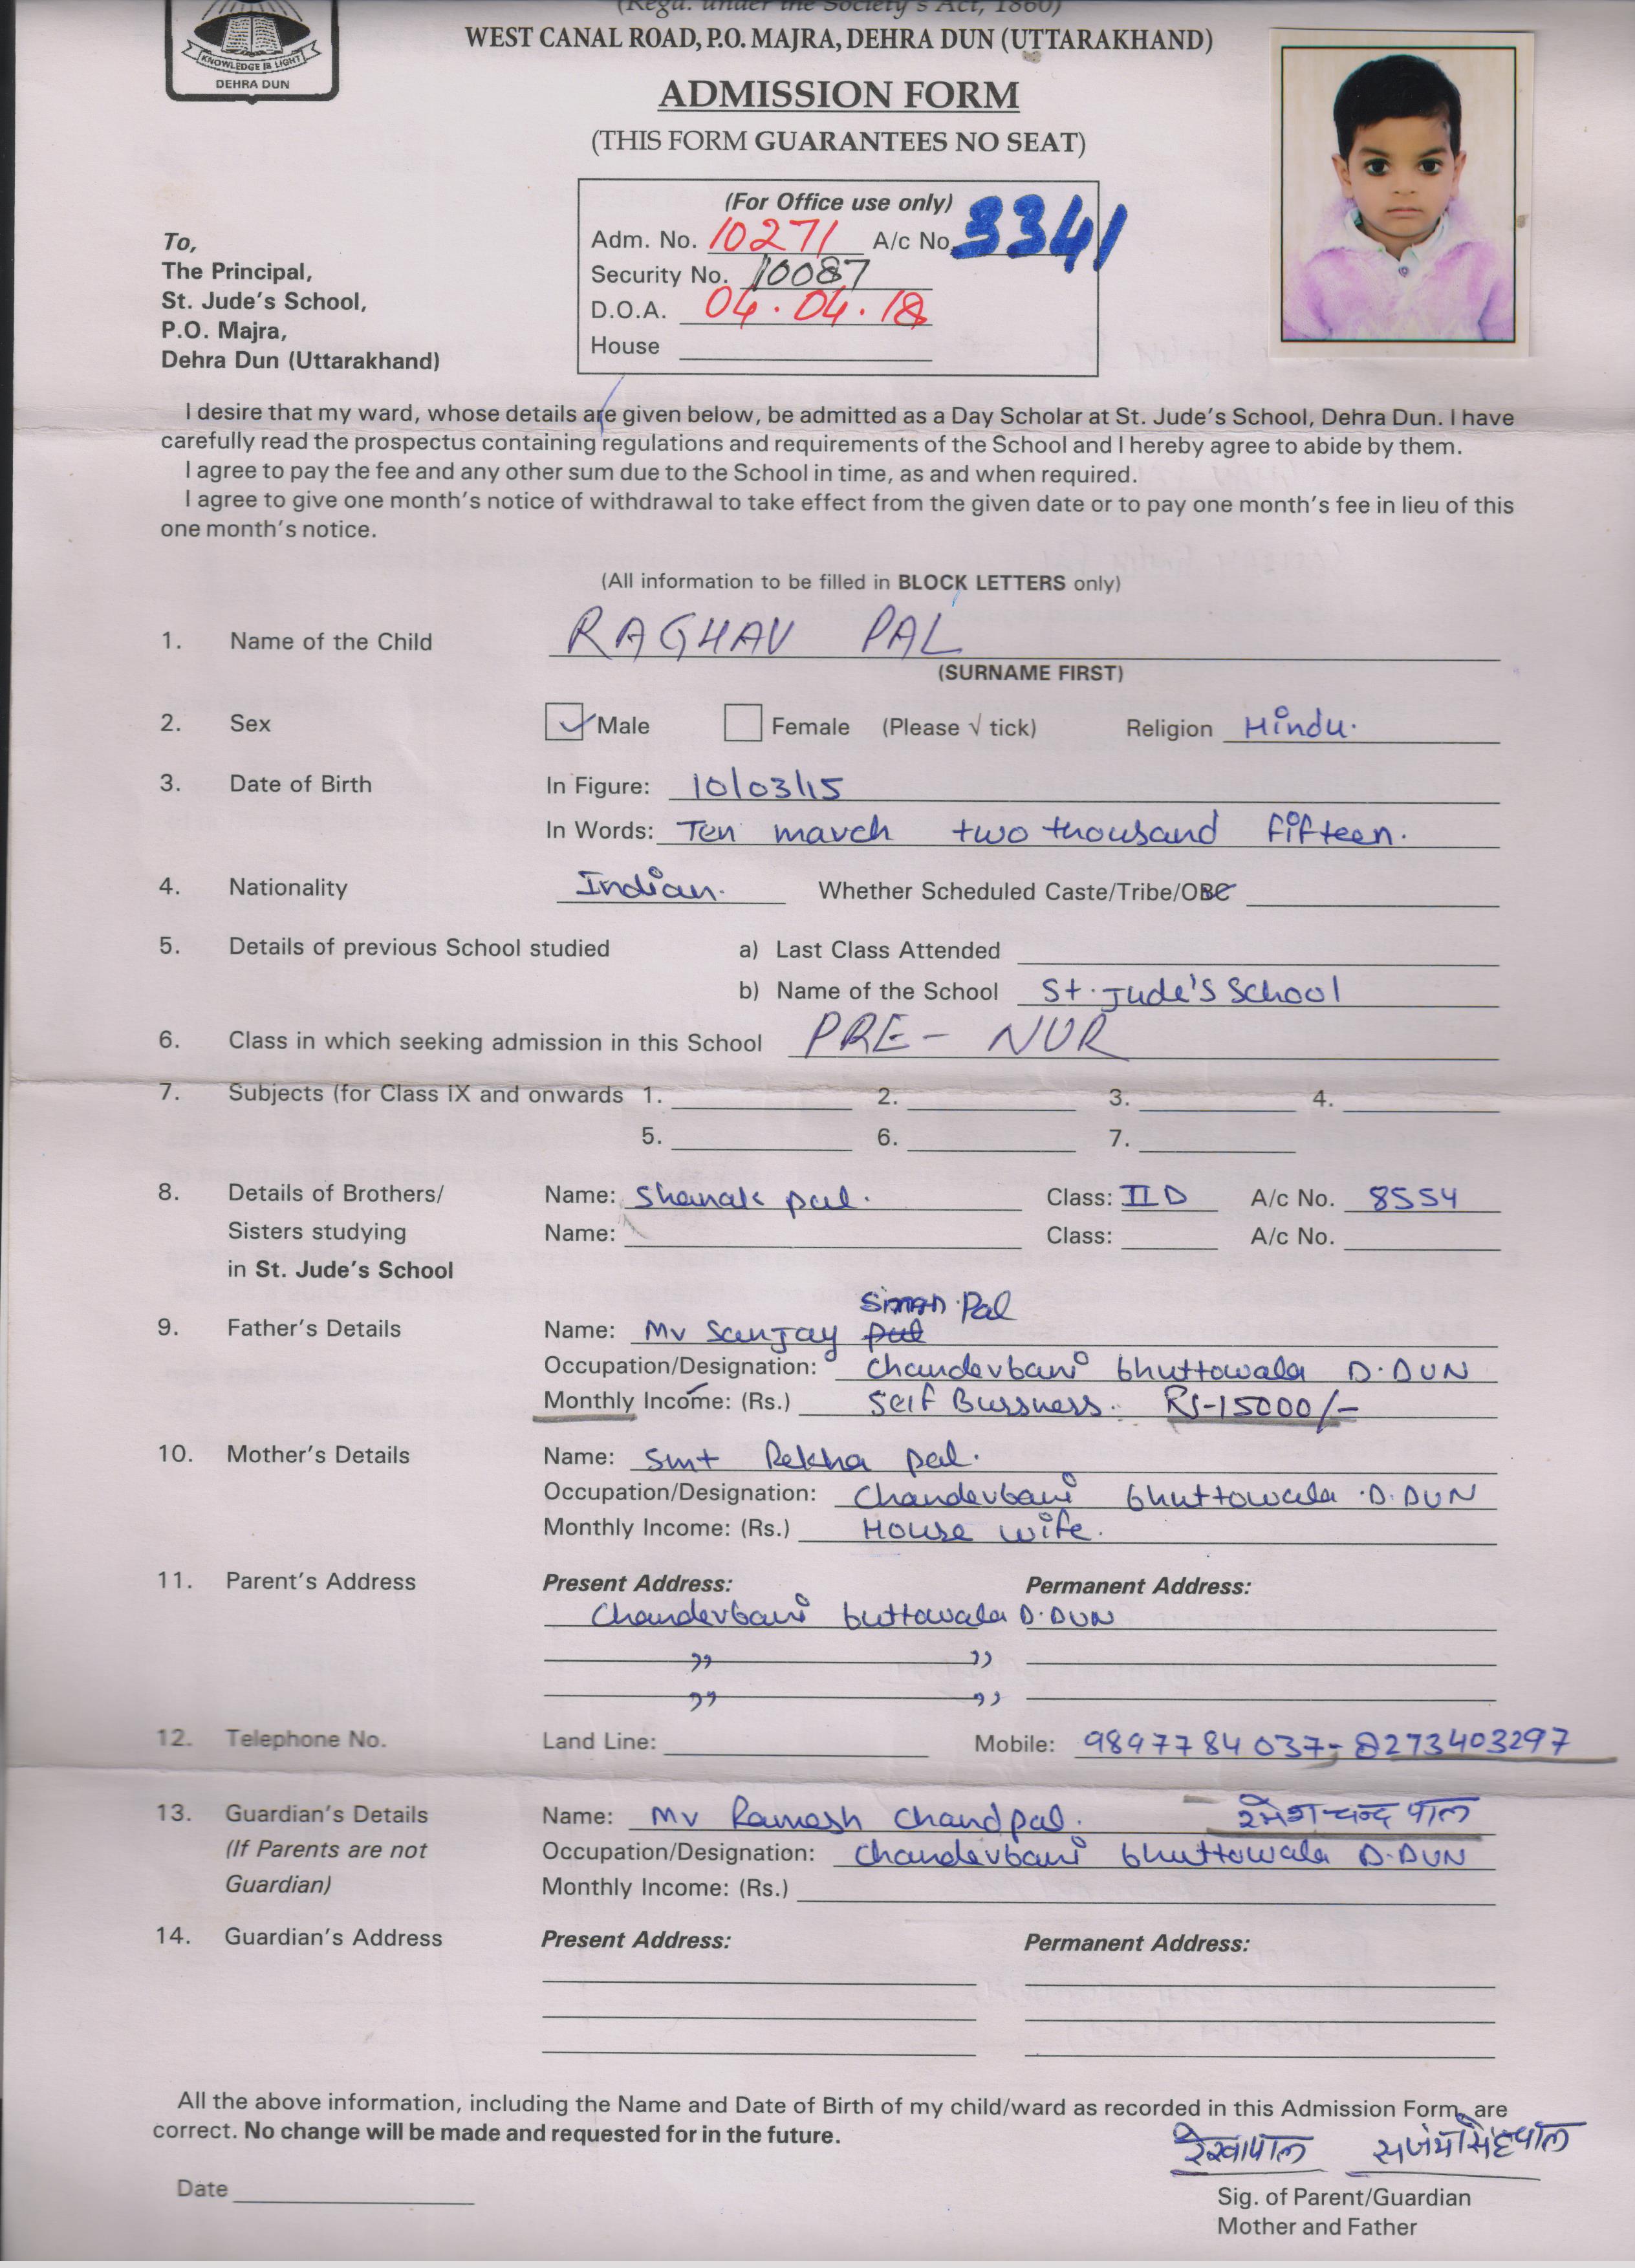 (Regd. under the Society's Act, 1860)
WEST CANAL ROAD, P.O. MAJRA, DEHRA DUN (UTTARAKHAND)
KNOWLEDGE IS LIGHT
DEHRA DUN
ADMISSION FORM
(THIS FORM GUARANTEES NO SEAT)
(For Office use only)
Adm. No. 10271 A/c No. 3341
Security No. 10087
D.O.A. 04.04.18
House
To,
The Principal,
St. Jude's School,
P.O. Majra,
Dehra Dun (Uttarakhand)
I desire that my ward, whose details are given below, be admitted as a Day Scholar at St. Jude's School, Dehra Dun. I have
carefully read the prospectus containing regulations and requirements of the School and I hereby agree to abide by them.
I agree to pay the fee and any other sum due to the School in time, as and when required.
I agree to give one month's notice of withdrawal to take effect from the given date or to pay one month's fee in lieu of this
one month's notice.
(All information to be filled in BLOCK LETTERS only)
1. Name of the Child RAGHAV PAL
(SURNAME FIRST)
2. Sex Male Female (Please √ tick) Religion Hindu.
3. Date of Birth In Figure: 10/03/15
In Words: Ten march two thousand fifteen.
4. Nationality Indian. Whether Scheduled Caste/Tribe/OBC
5. Details of previous School studied a) Last Class Attended
b) Name of the School St. Jude's School
6. Class in which seeking admission in this School PRE - NUR
7. Subjects (for Class IX and onwards 1. 2. 3. 4.
5. 6. 7.
8. Details of Brothers/ Name: Shanak pal. Class: II D A/c No. 8554
Sisters studying Name: Class: A/c No.
in St. Jude's School
Pal
9. Father's Details Name: Mr Sanjay pal
Occupation/Designation: Chanderbani bhuttowala D.DUN
Monthly Income: (Rs.) Self Bussness. Rs-15000/-
10. Mother's Details Name: Smt Rekha pal.
Occupation/Designation: Chanderbani bhuttowala .D.DUN
Monthly Income: (Rs.) House wife.
11. Parent's Address Present Address: Permanent Address:
Chanderbani buttowala D.DUN
" "
" "
12. Telephone No. Land Line: Mobile: 9897784037- 8273403297
13. Guardian's Details Name: Mr Ramesh Chand pal. रमेश चन्द पाल
(If Parents are not Occupation/Designation: Chanderbani bhuttowala D.DUN
Guardian) Monthly Income: (Rs.)
14. Guardian's Address Present Address: Permanent Address:
All the above information, including the Name and Date of Birth of my child/ward as recorded in this Admission Form, are
correct. No change will be made and requested for in the future.
रेखा पाल
Date
Sig. of Parent/Guardian
Mother and Father